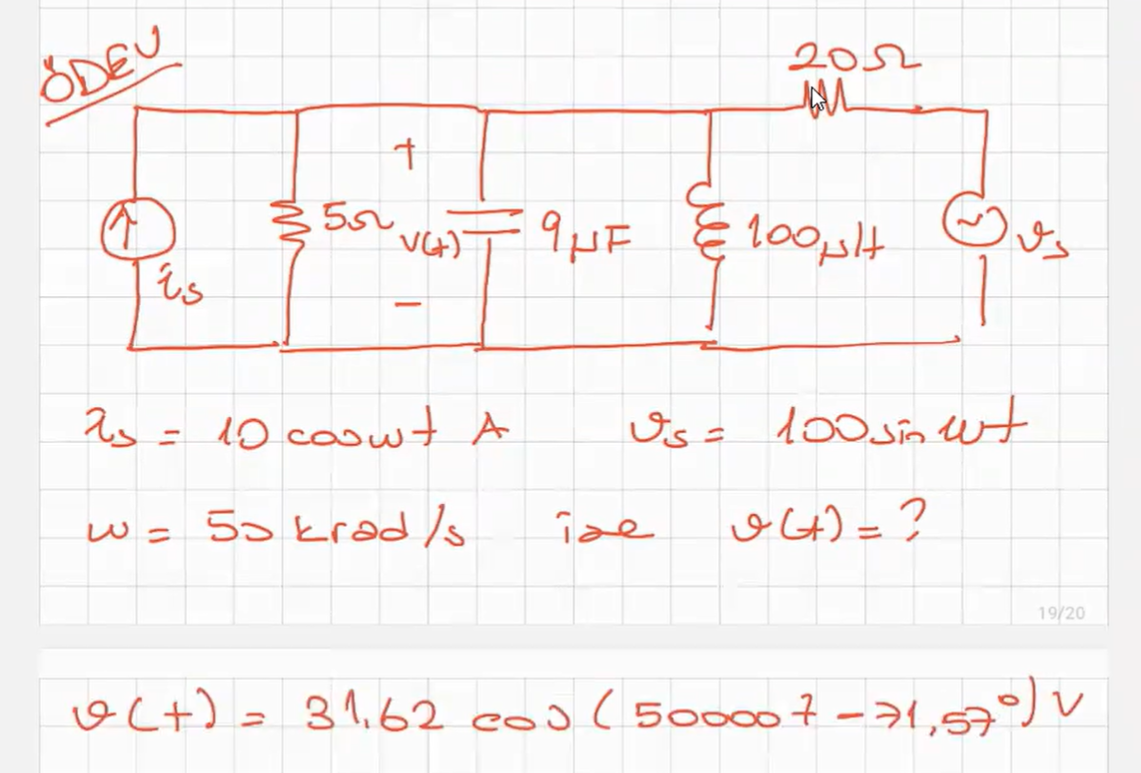 ÖDEV
20Ω
+
5Ω
v(t)
9µF
100µH
is
vs
-
is = 10 coswt A
vs = 100 sin wt
w = 50 krad/s ise v(t) = ?
19/20
v(t) = 31,62 cos (50000t - 71,57°) V